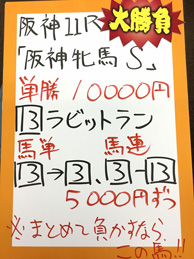 大勝負
阪神11R
「阪神牝馬S」
単勝 10000円
13ラビットラン
馬単 馬連
13→3、3-13
5000円ずつ
※まとめて負かすなら、
この馬!!